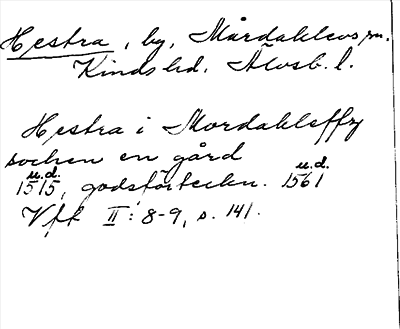 Hestra, by, Mårdaklevs sn.
Kinds hd. Älvsb. l.
Hestra i Mordakleffz
sochen en gård
u.d. u.d.
1515, godsförteckn. 1561
Vff II: 8-9, s. 141.